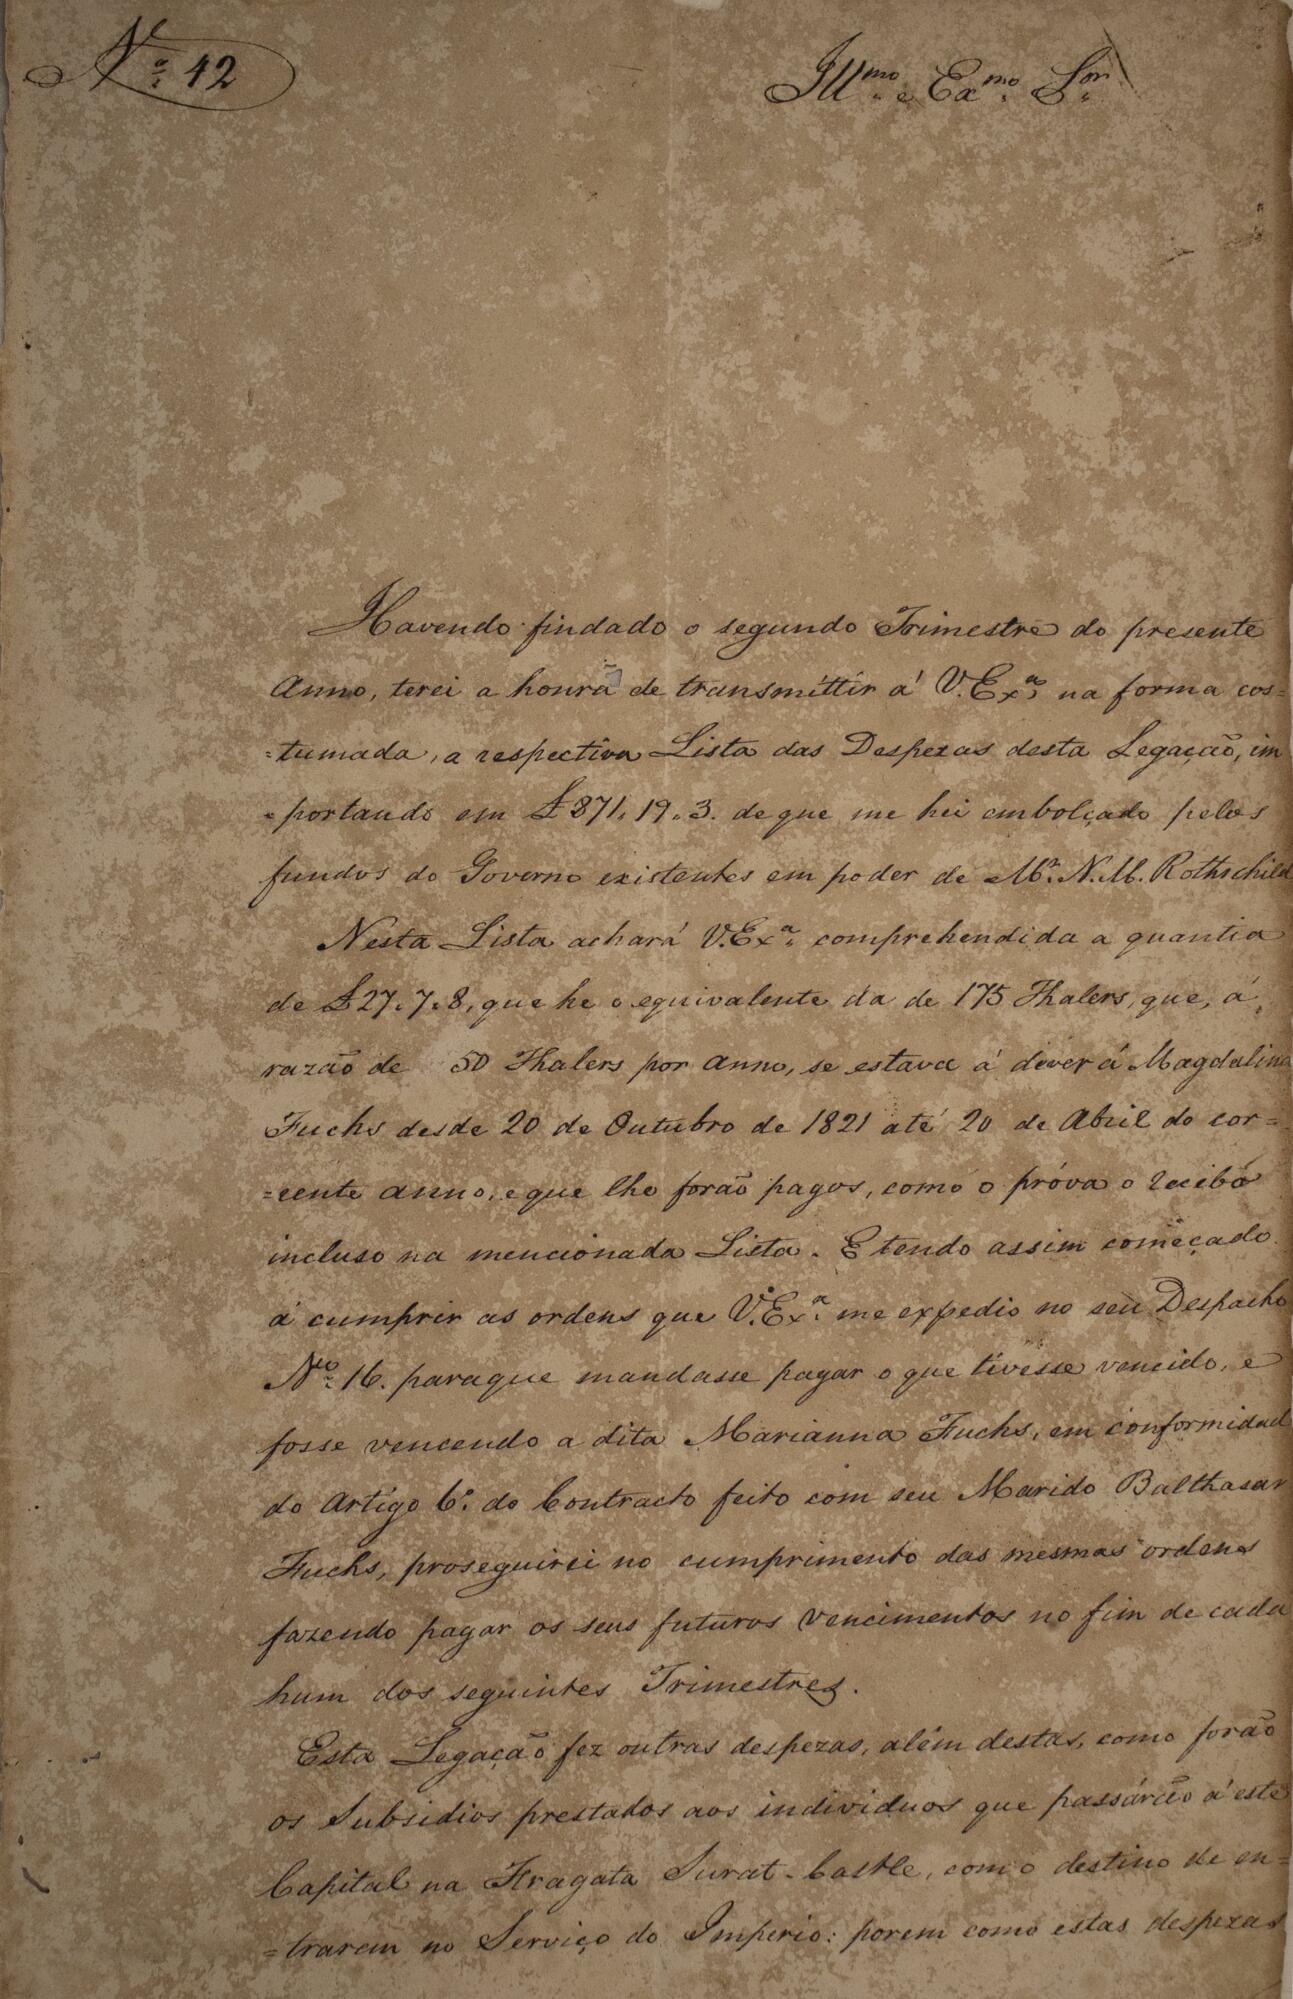 Nº 42
Illmo e Exmo Sor
Havendo findado o segundo Trimestre do presente
Anno, terei a honra de transmittir á V. Exª na forma cos=
=tumada, a respectiva Lista das Despezas desta Legação, im
=portando em £ 871. 19. 3. de que me hei embolçado pelos
fundos do Governo existentes em poder de Mr. N. M. Rothschild
Nesta Lista achará V. Exª comprehendida a quantia
de £ 27. 7. 8, que he o equivalente da de 175 Thalers, que, á
razão de 50 Thalers por anno, se estava á dever á Magdalina
Fuchs desde 20 de Outubro de 1821 até 20 de Abril do cor=
=rente anno, e que lhe forão pagos, como o próva o recibo
incluso na mencionada Lista. E tendo assim começado
á cumprir as ordens que V. Exª me expedio no seu Despacho
Nº 16. paraque mandasse pagar o que tivesse vencido, e
fosse vencendo a dita Marianna Fuchs, em conformidad
do Artigo 6º do Contracto feito com seu Marido Balthasar
Fuchs, proseguirei no cumprimento das mesmas ordens
fazendo pagar os seus futuros vencimentos no fim de cada
hum dos seguintes Trimestres.
Esta Legação fez outras despezas, além destas, como forão
os Subsidios prestados aos individuos que passárão á este
Capital na Fragata Surat-Castle, com o destino de en=
=trarem no Serviço do Imperio: porem como estas despezas